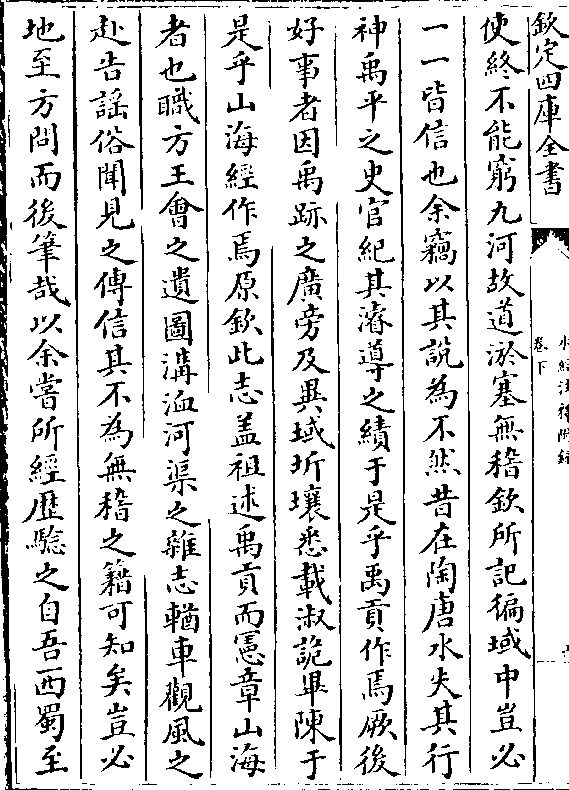 欽定四庫全書
卷下
使終不能窮九河故道淤塞無稽欽所記徧域中豈必
一一皆信也余竊以其說為不然昔在陶唐水失其行
神禹平之史官紀其濬導之績于是乎禹貢作焉厥後
好事者因禹跡之廣旁及異域圻壤悉載淑詭畢陳于
是乎山海經作焉原欽此志盖祖述禹貢而憲章山海
者也職方王會之遺圖溝洫河渠之雜志輶車觀風之
赴告謡俗聞見之傳信其不為無稽之籍可知矣豈必
地至方問而後筆哉以余嘗所經歴驗之自吾西蜀至